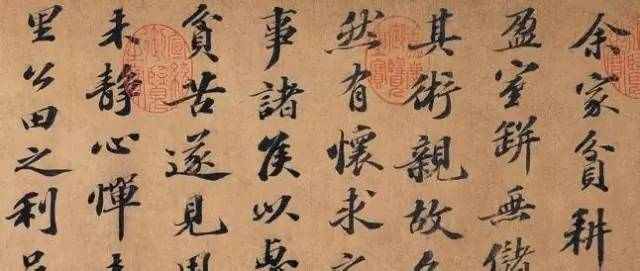 余家貧耕
盈室缾無儲
其術親故
然有懷求
事諸侯以惠
貧苦遂見
未靜心憚
里公田之利